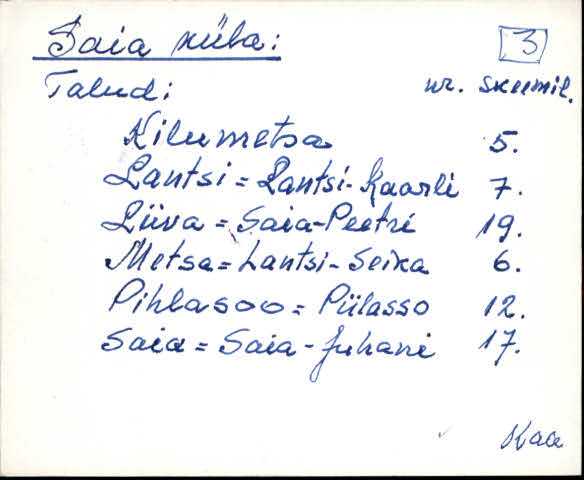 Saia küla:
3
Talud: nr. skeemil.
Kilumetsa 5.
Lantsi = Lantsi-Kaarli 7.
Liiva = Saia-Peetri 19.
Metsa = Lantsi-Seika 6.
Pihlasoo = Piilasso 12.
Saia = Saia-Juhani 17.
Kaa